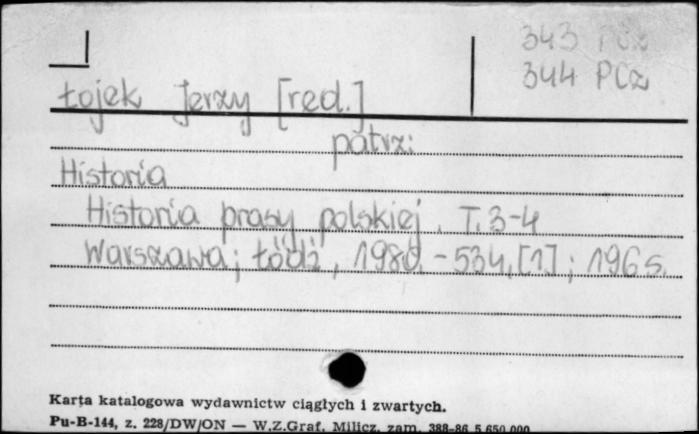 343 PCz
344 PCz
Łojek Jerzy [red.]
patrz:
Historia
Historia prasy polskiej. T. 3-4
Warszawa; Łódź, 1980. - 534, [1]; 196 s.
Karta katalogowa wydawnictw ciągłych i zwartych.
Pu-B-144, z. 228/DW/ON — W.Z.Graf. Milicz, zam. 388-86 5.650.000